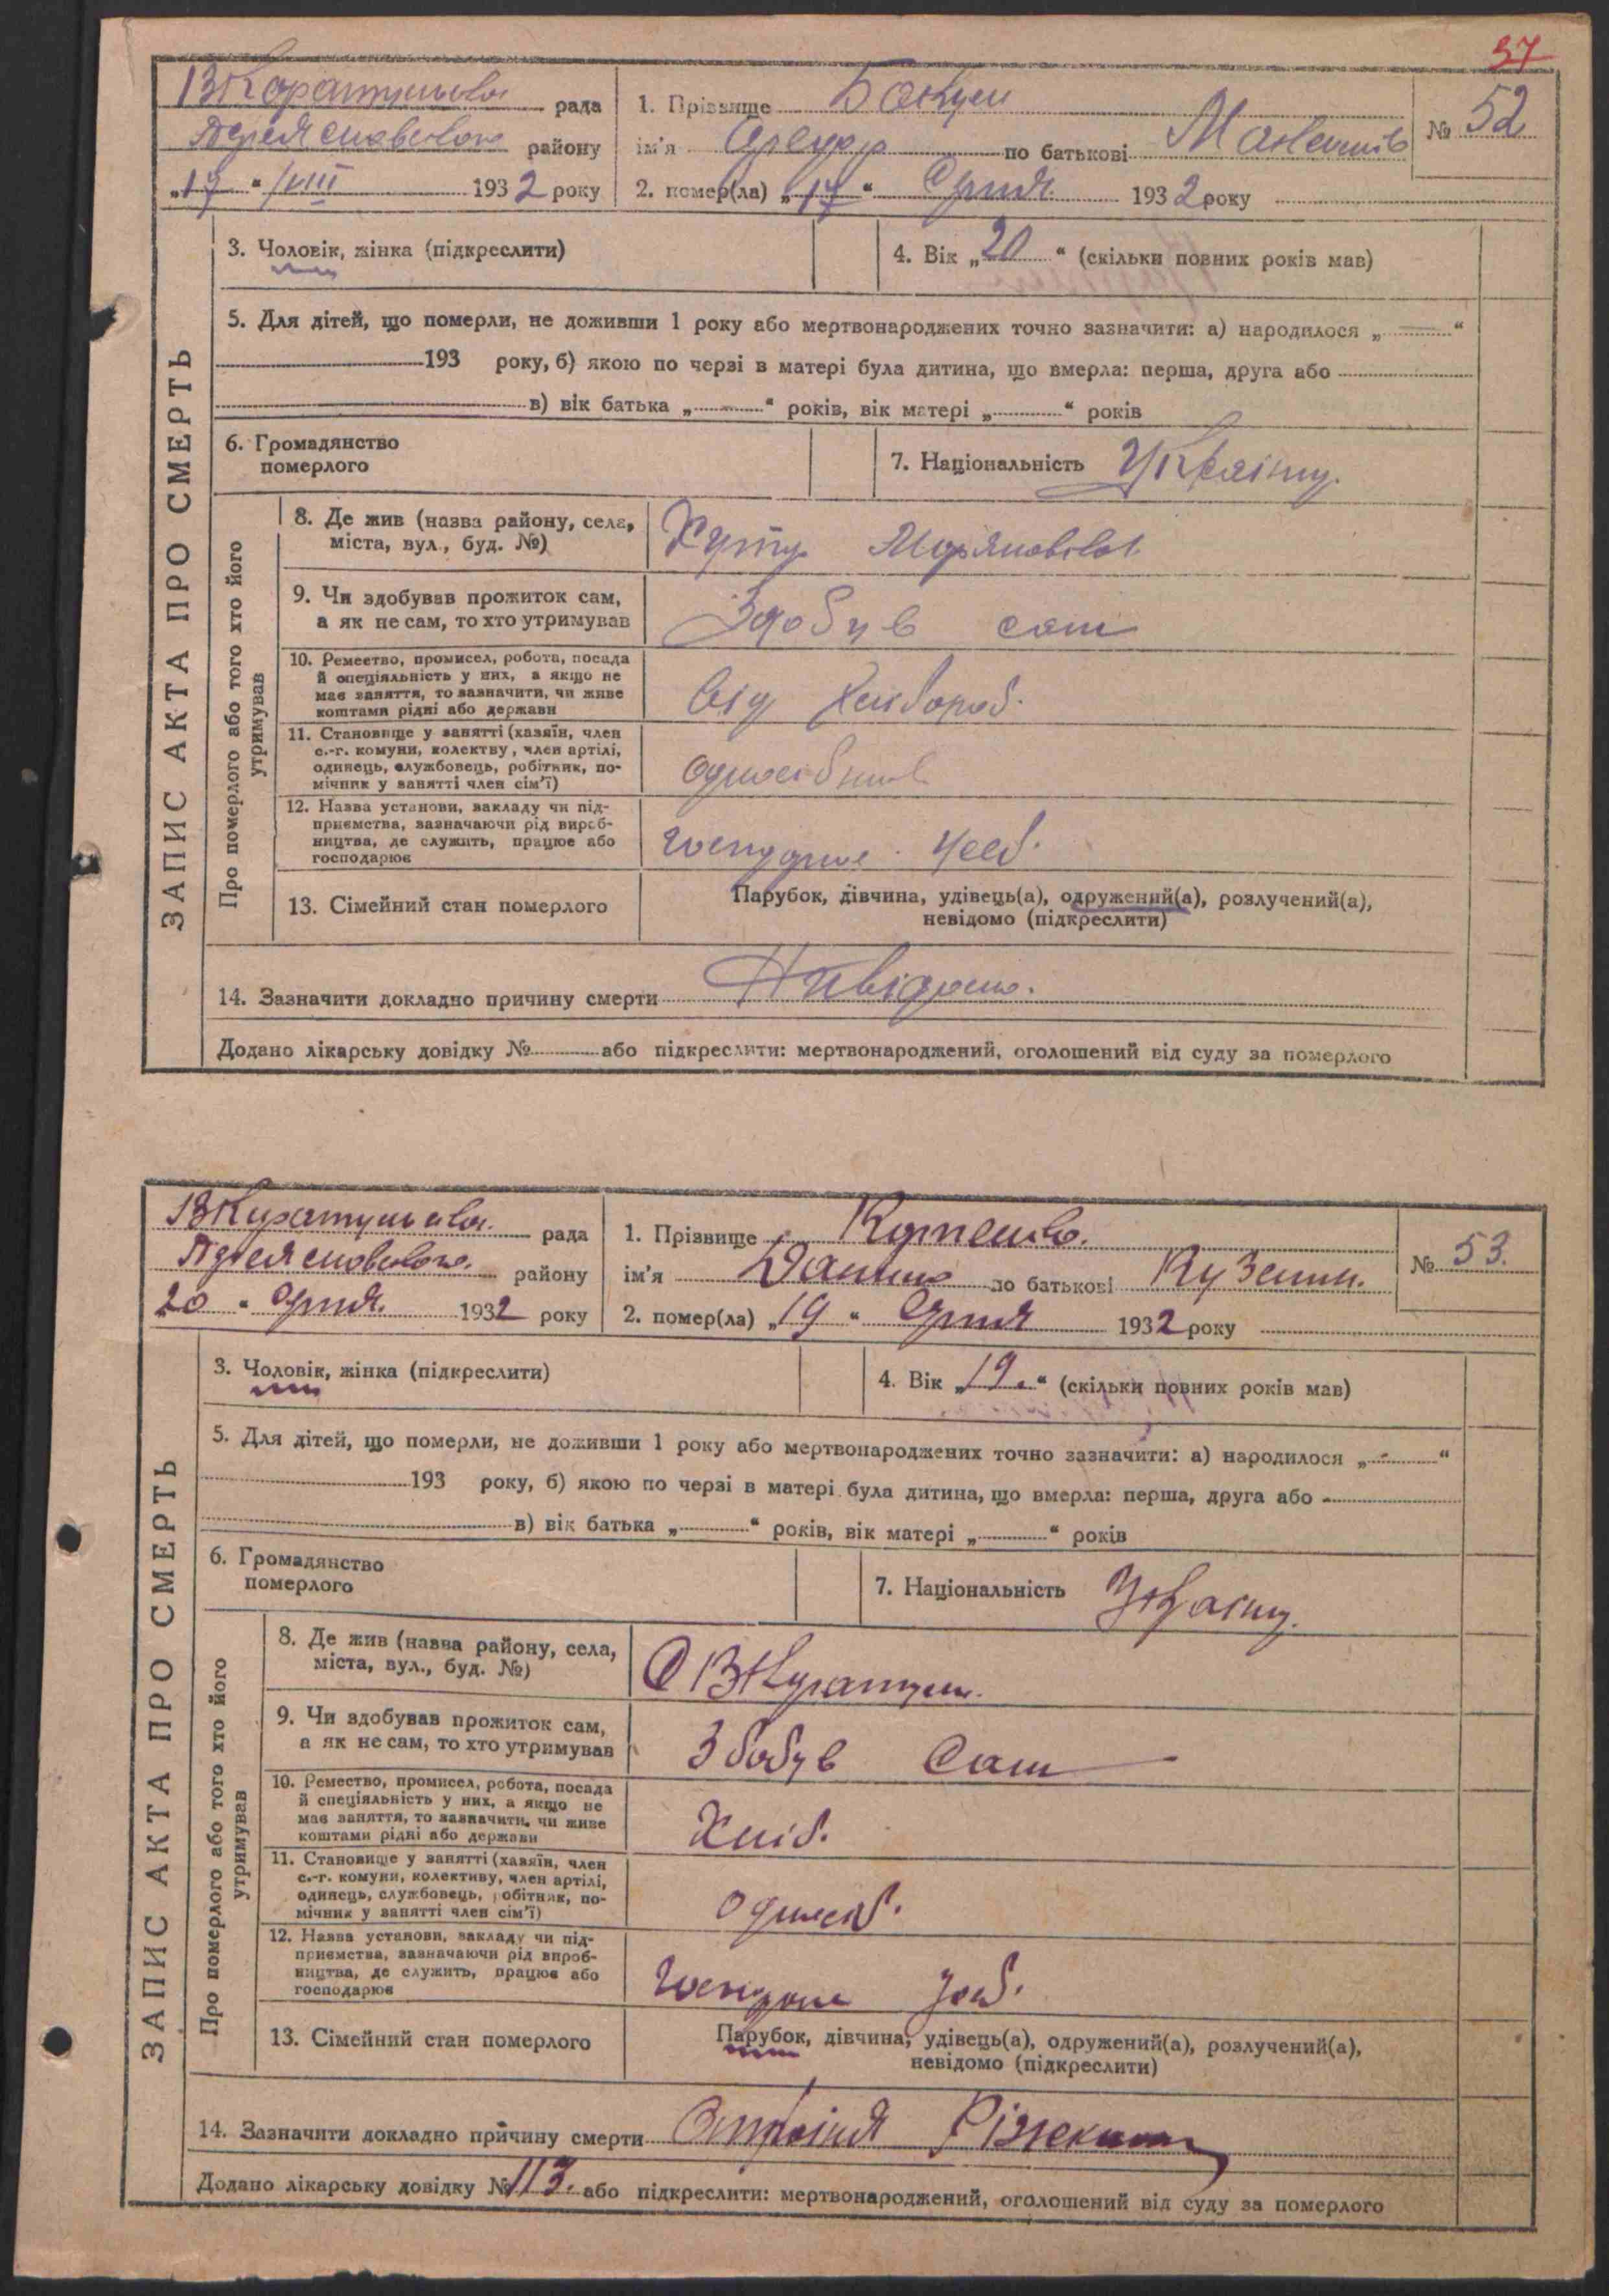 37
рада
району
„17“ /VIII 1932 року
1. Прізвище
ім'я по батькові
№ 52
2. помер(ла) „17“ Серпня 1932 року
3. Чоловік, жінка (підкреслити)
4. Вік „20“ (скільки повних років мав)
5. Для дітей, що померли, не доживши 1 року або мертвонароджених точно зазначити: а) народилося „ “
193 року, б) якою по черзі в матері була дитина, що вмерла: перша, друга або
в) вік батька „ “ років, вік матері „ “ років
6. Громадянство
померлого
7. Національність
ЗАПИС АКТА ПРО СМЕРТЬ
Про померлого або того хто його
утримував
8. Де жив (назва району, села,
міста, вул., буд. №)
Хутір
9. Чи здобував прожиток сам,
а як не сам, то хто утримував
Здобув сам
10. Ремество, промисел, робота, посада
й спеціяльність у них, а якщо не
має заняття, то зазначити, чи живе
коштами рідні або держави
11. Становище у занятті (хазяїн, член
с.-г. комуни, колектву, член артілі,
одинець, службовець, робітник, по-
мічник у занятті член сім'ї)
12. Назва установи, закладу чи під-
приємства, зазначаючи рід вироб-
ництва, де служить, працює або
господарює
13. Сімейний стан померлого
Парубок, дівчина, удівець(а), одружений(а), розлучений(а),
невідомо (підкреслити)
14. Зазначити докладно причину смерти Невідомо.
Додано лікарську довідку № або підкреслити: мертвонароджений, оголошений від суду за померлого
рада
району
20 “ Серпня. 1932 року
1. Прізвище
ім'я Данило по батькові
№ 53.
2. помер(ла) „19“ Серпня 1932 року
3. Чоловік, жінка (підкреслити)
4. Вік „19.“ (скільки повних років мав)
5. Для дітей, що померли, не доживши 1 року або мертвонароджених точно зазначити: а) народилося „ “
193 року, б) якою по черзі в матері була дитина, що вмерла: перша, друга або
в) вік батька „ “ років, вік матері „ “ років
6. Громадянство
померлого
7. Національність
ЗАПИС АКТА ПРО СМЕРТЬ
Про померлого або того хто його
утримував
8. Де жив (назва району, села,
міста, вул., буд. №)
9. Чи здобував прожиток сам,
а як не сам, то хто утримував
Сам
10. Ремество, промисел, робота, посада
й спеціяльність у них, а якщо не
має заняття, то зазначити, чи живе
коштами рідні або держави
Хліб.
11. Становище у занятті (хазяїн, член
с.-г. комуни, колективу, член артілі,
одинець, службовець, робітник, по-
мічник у занятті член сім'ї)
12. Назва установи, закладу чи під-
приємства, зазначаючи рід вироб-
ництва, де служить, працює або
господарює
13. Сімейний стан померлого
Парубок, дівчина, удівець(а), одружений(а), розлучений(а),
невідомо (підкреслити)
14. Зазначити докладно причину смерти
Додано лікарську довідку № 113. або підкреслити: мертвонароджений, оголошений від суду за померлого